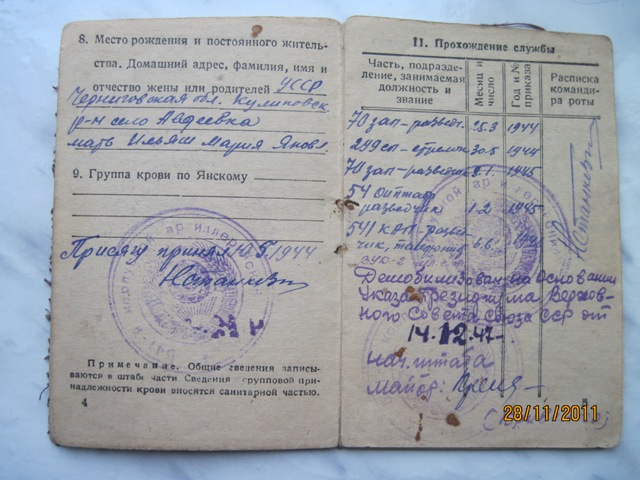 8. Место рождения и постоянного житель-
ства. Домашний адрес, фамилия, имя и
отчество жены или родителей УССР
Черниговская обл. Куликовск
р-н село Авдеевка
мать Ильяш Мария Яковл
9. Группа крови по Янскому
Присягу принял 10.5.1944
Примечание. Общие сведения записы-
ваются в штабе части Сведения групповой при-
надлежности крови вносятся санитарной частью.
4
11. Прохождение службы
Часть, подразде-
ление, занимаемая
должность и
звание
Месяц и
число
Год и №
приказа
Расписка
команди-
ра роты
70 зап-разведч. 25.3 1944
сп-стрелок 30.5 1944
70 зап-разведчик 1945
54
разведчик 1.2 1945
541 КАП-развед
чик, 6.6
Демобилизован на основании
Указа Президиума Верхов-
ного Совета Союза ССР от
14.12.47-
нач. штаба
майор:
28/11/2011